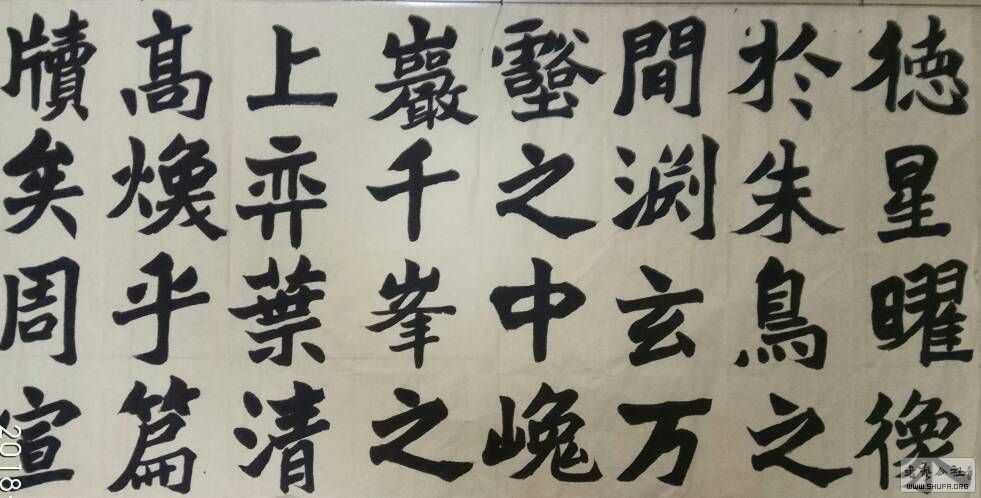 徳星曜像
於朱鳥之
間淵玄万
壑之中巉
巖千峯之
上弈葉清
高煥乎篇
牘矣周宣
2018
书艺公社
WWW.SHUFA.ORG